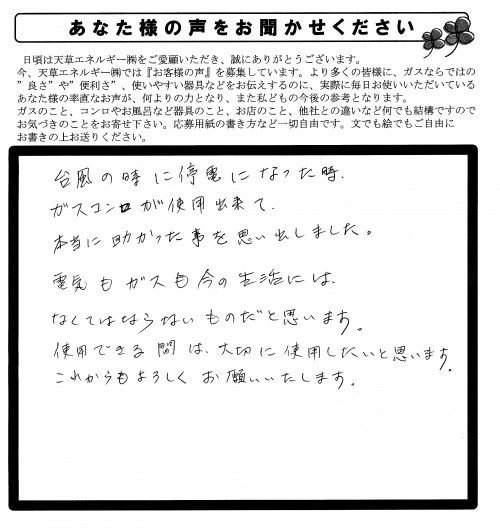 あなた様の声をお聞かせください
日頃は天草エネルギー㈱をご愛顧いただき、誠にありがとうございます。
今、天草エネルギー㈱では『お客様の声』を募集しています。より多くの皆様に、ガスならではの
”良さ”や”便利さ”、使いやすい器具などをお伝えするのに、実際に毎日お使いいただいている
あなた様の率直なお声が、何よりの力となり、また私どもの今後の参考となります。
ガスのこと、コンロやお風呂など器具のこと、お店のこと、他社との違いなど何でも結構ですので
お気づきのことをお寄せ下さい。応募用紙の書き方など一切自由です。文でも絵でもご自由に
お書きの上お送りください。
台風の時に停電になった時、
ガスコンロが使用出来て、
本当に助かった事を思い出しました。
電気もガスも今の生活には、
なくてはならないものだと思います。
使用できる間は、大切に使用したいと思います。
これからもよろしくお願いいたします。